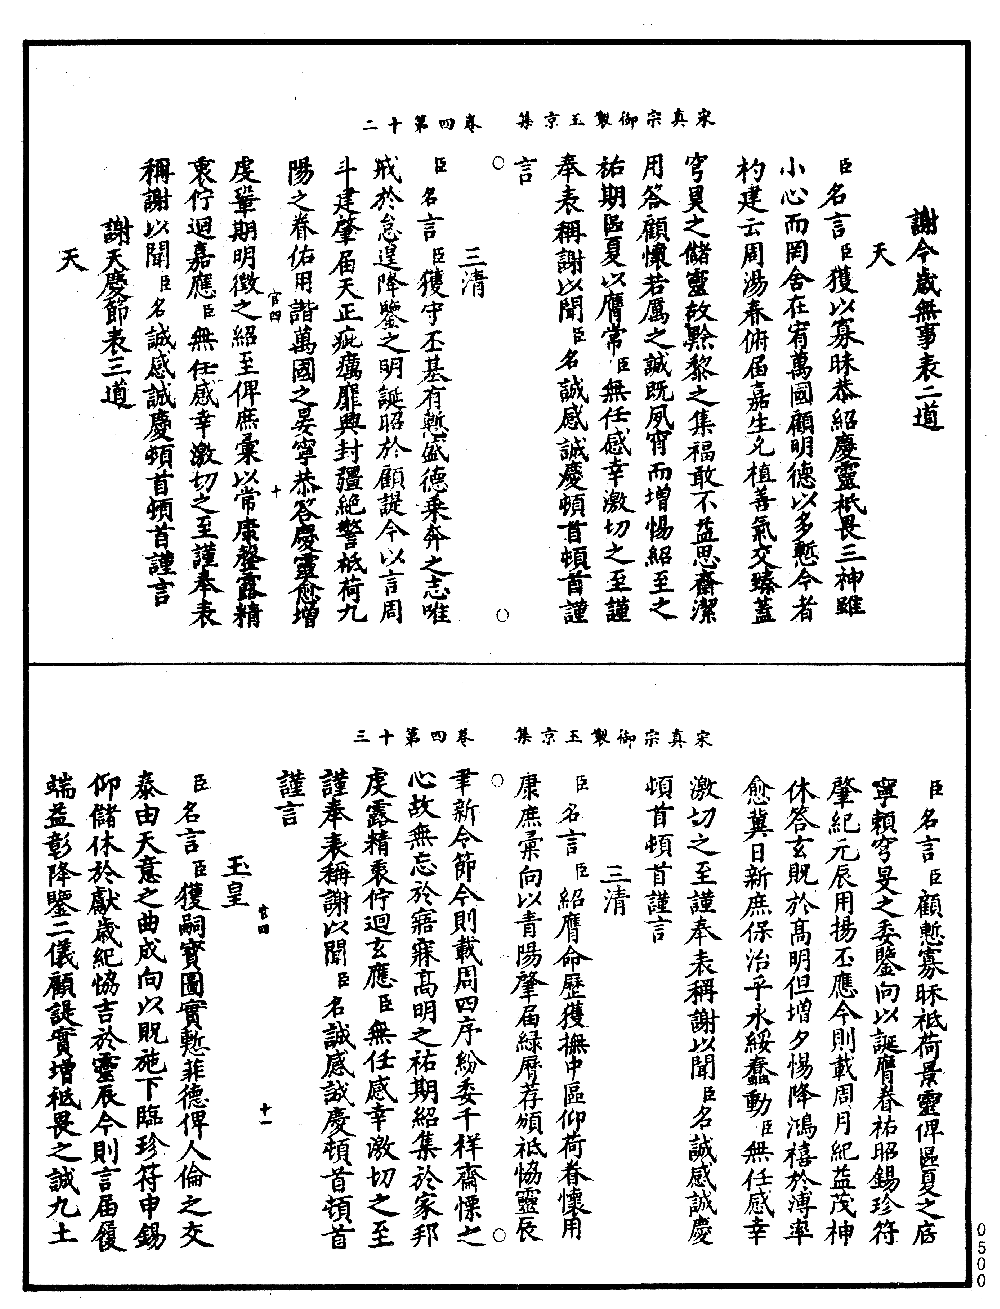 宋真宗御製玉京集　卷四第十二
謝今歲無事表二道
天
臣名言臣獲以寡昧恭紹慶靈祇畏三神雖
小心而罔舍在宥萬國顧明德以多慙今者
杓建云周湯春俯届嘉生允植善氣交臻蓋
穹昊之儲靈故黔黎之集福敢不益思齋潔
用答顧懷若厲之誠既夙宵而增惕紹至之
祐期區夏以膺常臣無任感幸激切之至謹
奉表稱謝以聞臣名誠感誠慶頓首頓首謹
言
三清
臣名言臣獲守丕基有慙盛德乘奔之志唯
戒於怠遑降鑒之明誕昭於顧諟今以言周
斗建肇届天正疵癘靡興封疆絶警祇荷九
陽之眷佑用諧萬國之晏寧恭答慶靈愈增
官四　十
虔鞏期明徵之紹至俾庶彙以常康罄露精
衷佇迴嘉應臣無任感幸激切之至謹奉表
稱謝以聞臣名誠感誠慶頓首頓首謹言
謝天慶節表三道
天
宋真宗御製玉京集　卷四第十三
臣名言臣顧慙寡昧祇荷景靈俾區夏之底
寧賴穹旻之委鑒向以誕膺眷祐昭錫珍符
肇紀元辰用揚丕應今則載周月紀益茂神
休答玄貺於高明但增夕惕降鴻禧於溥率
愈冀日新庶保治乎永綏蠢動臣無任感幸
激切之至謹奉表稱謝以聞臣名誠感誠慶
頓首頓首謹言
三清
臣名言臣紹膺命歷獲撫中區仰荷眷懷用
康庶彙向以青陽肇届緑曆荐頒祇協靈辰
聿新令節今則載周四序紛委千祥齋慄之
心故無忘於寤寐高明之祐期紹集於家邦
虔露精衷佇迴玄應臣無任感幸激切之至
謹奉表稱謝以聞臣名誠感誠慶頓首頓首
謹言
玉皇
官四　十一
臣名言臣獲嗣寶圖實慙菲德俾人倫之交
泰由天意之曲成向以貺施下臨珍符申錫
仰儲休於獻歲紀協吉於靈辰今則言届履
端益彰降鑒二儀顧諟實增祇畏之誠九土
0500